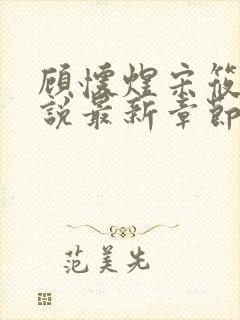 顾怀煜宋筱
说最新章节
范美先